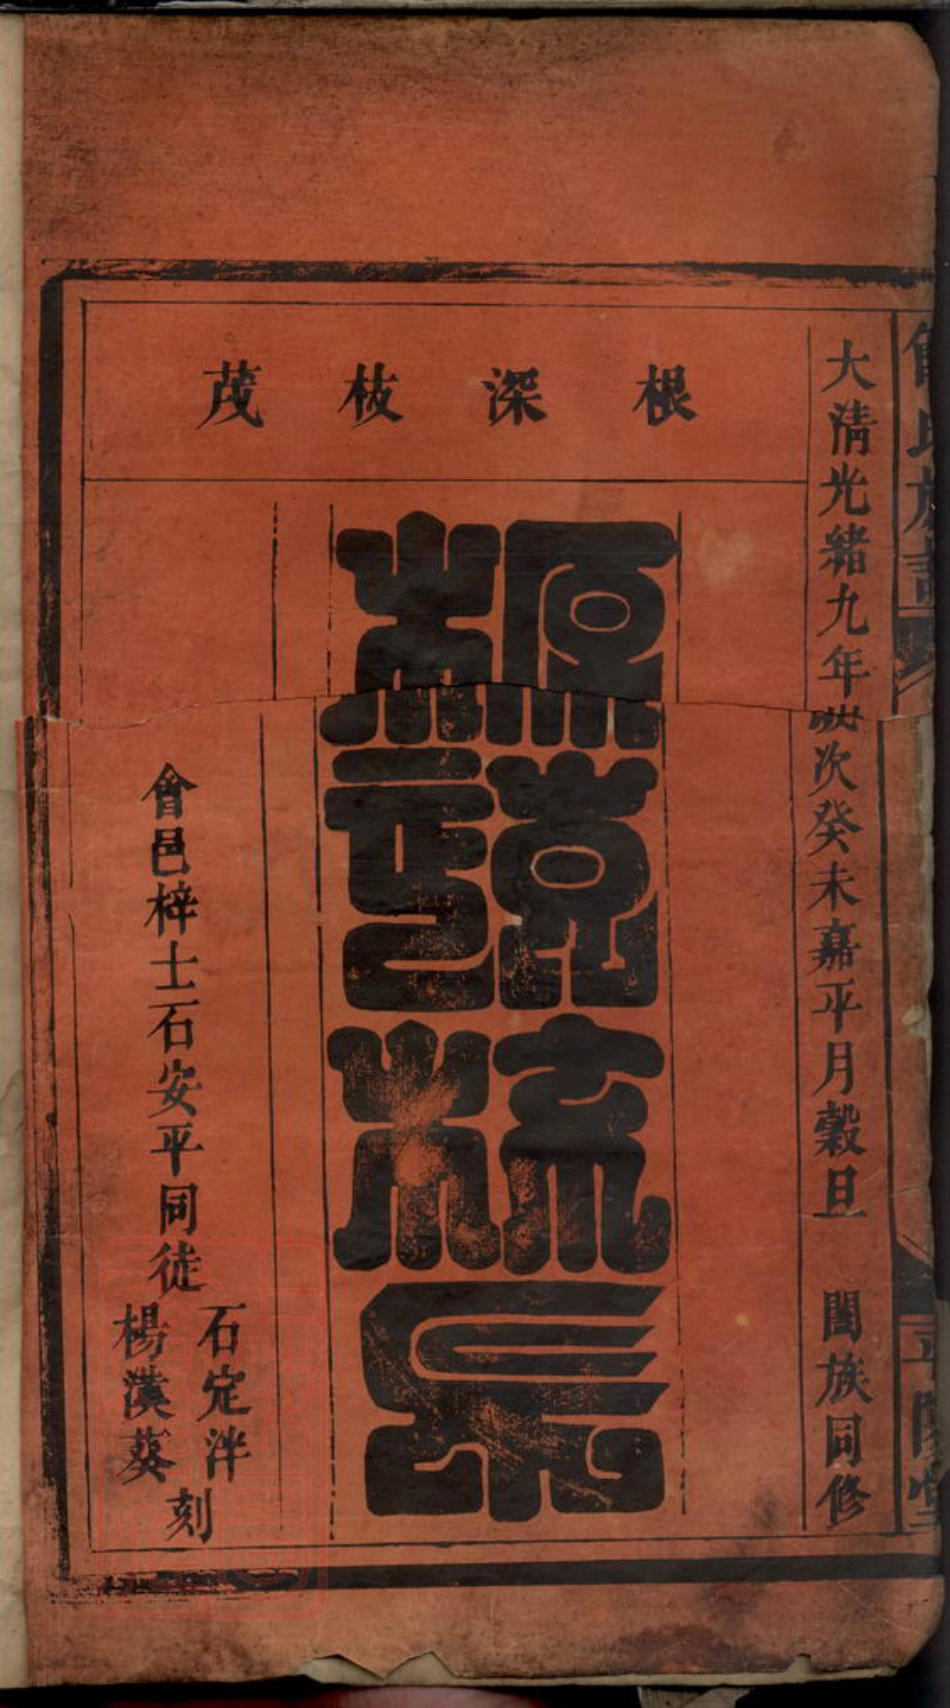 大清光緒九年歲次癸未嘉平月穀旦 闔族同修
根深枝茂
源遠流長
會邑梓士石安平同徒
石定泮
楊漢葵
刻